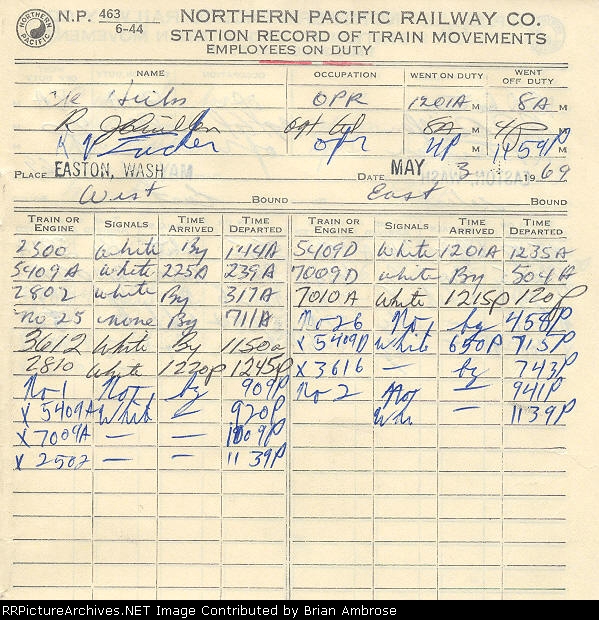 NORTHERN PACIFIC
N.P. 463 6-44
NORTHERN PACIFIC RAILWAY CO.
STATION RECORD OF TRAIN MOVEMENTS
EMPLOYEES ON DUTY
NAME OCCUPATION WENT ON DUTY WENT OFF DUTY
OPR 1201A M 8A M
R 8A M 4P M
Tucker opr 4P M 1159P M
PLACE EASTON, WASH DATE MAY 3 1969
West BOUND East BOUND
TRAIN OR ENGINE SIGNALS TIME ARRIVED TIME DEPARTED TRAIN OR ENGINE SIGNALS TIME ARRIVED TIME DEPARTED
2500 White By 144A 5409D White 1201A 1235A
5409A White 225A 239A 7009D White By 504A
2802 White By 317A 7010A White 1215P 120P
No 25 none By 711A No 26 No, by 458P
3612 White By 1150a x 5409D White 650P 715P
2810 White 1220P 1245P x 3616 — by 743P
No 1 No, by 909P No 2 No — 941P
x 5409A White — 920P Whi — 1139P
x 7009A — — 1009P
x 2502 — — 1139P
RailPictureArchives.NET Image Contributed by Brian Ambrose